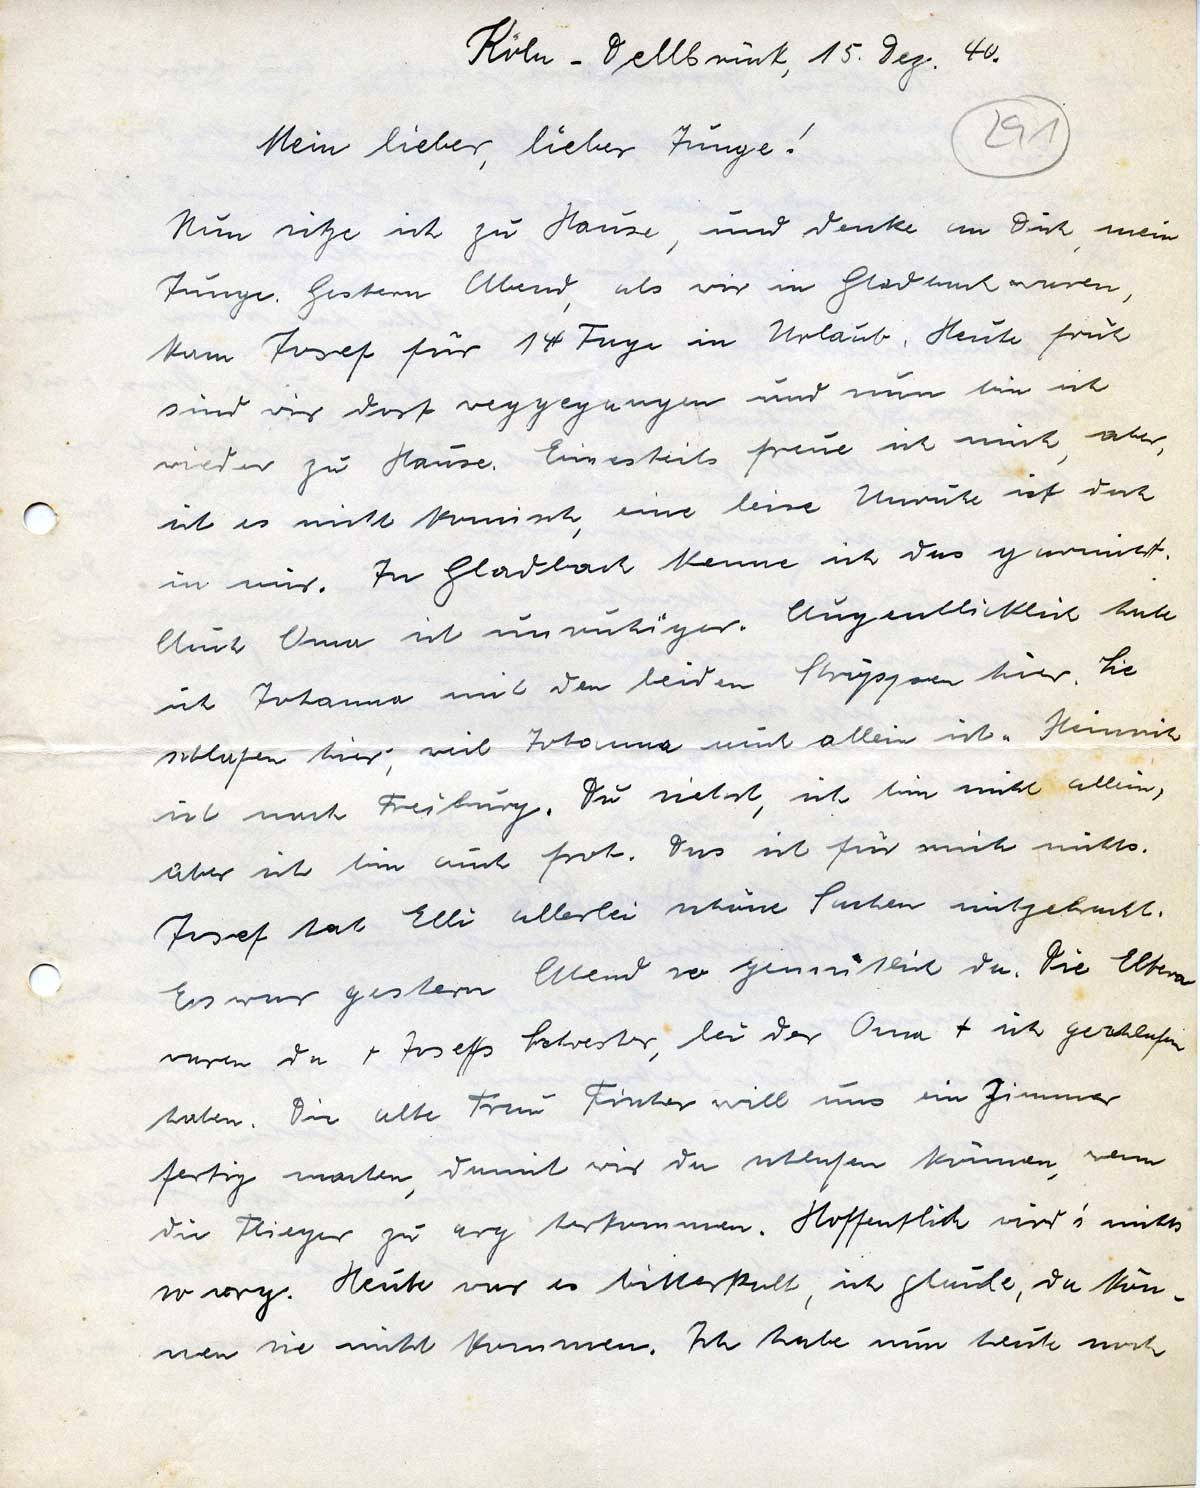 Köln-Dellbrück, 15. Dez. 40.
291
Mein lieber, lieber Junge!
Nun sitze ich zu Hause, und denke an Dich, mein
Junge. Gestern Abend, als wir in Gladbach waren,
kam Josef für 14 Tage in Urlaub. Heute früh
sind wir dort weggegangen und nun bin ich
wieder zu Hause. Einesteils freue ich mich, aber,
ist es nicht komisch, eine leise Unruhe ist doch
in mir. In Gladbach kenne ich das garnicht.
Auch Oma ist unruhiger. Augenblicklich habe
ich Johanna mit den beiden hier. Sie
schlafen hier, weil Johanna auch allein ist. Heinrich
ist nach Freiburg. Du siehst, ich bin nicht allein,
aber ich bin auch froh. Das ist für mich nichts.
Josef hat Elli allerlei schöne Sachen mitgebracht.
Es war gestern Abend so gemütlich da. Die Eltern
waren da + Josefs Schwester, bei der Oma + ich geschlafen
haben. Die alte Frau Fischer will uns ein Zimmer
fertig machen, damit wir da schlafen können, wenn
die Flieger zu arg herkommen. Hoffentlich wird's nicht
so arg. Heute war es bitterkalt, ich glaube, da kön-
nen sie nicht kommen. Ich habe nun heute noch